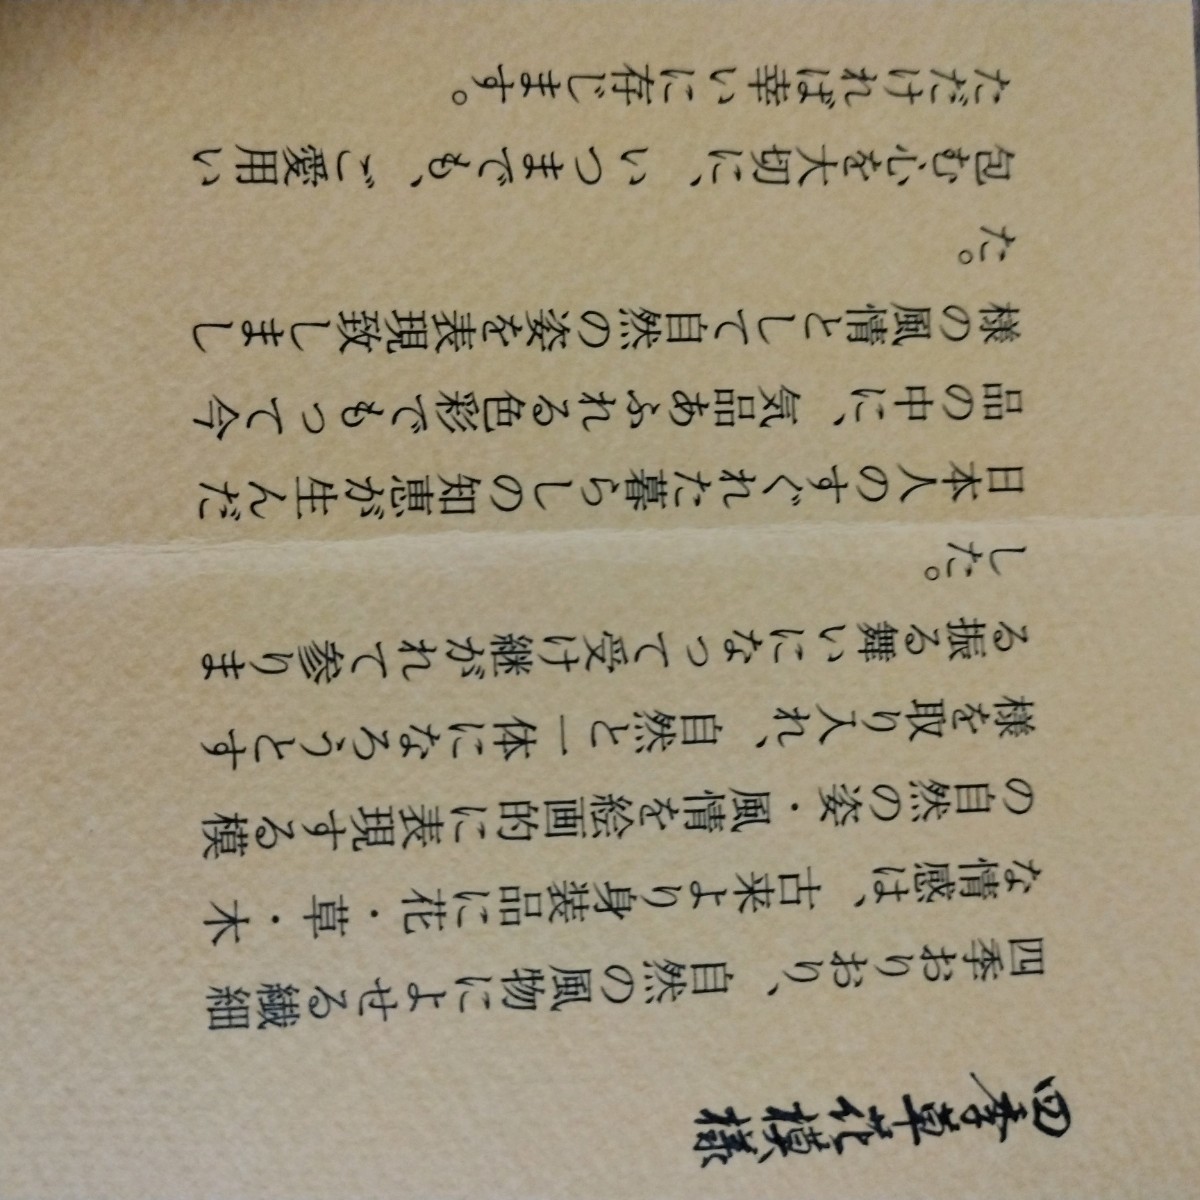 四季草花模様
四季おりおり、自然の風物によせる繊細
な情感は、古来より身装品に花・草・木
の自然の姿・風情を絵画的に表現する模
様を取り入れ、自然と一体になろうとす
る振る舞いになって受け継がれて参りま
した。
日本人のすぐれた暮らしの知恵が生んだ
品の中に、気品あふれる色彩でもって今
様の風情として自然の姿を表現致しまし
た。
包む心を大切に、いつまでも、ご愛用い
ただければ幸いに存じます。